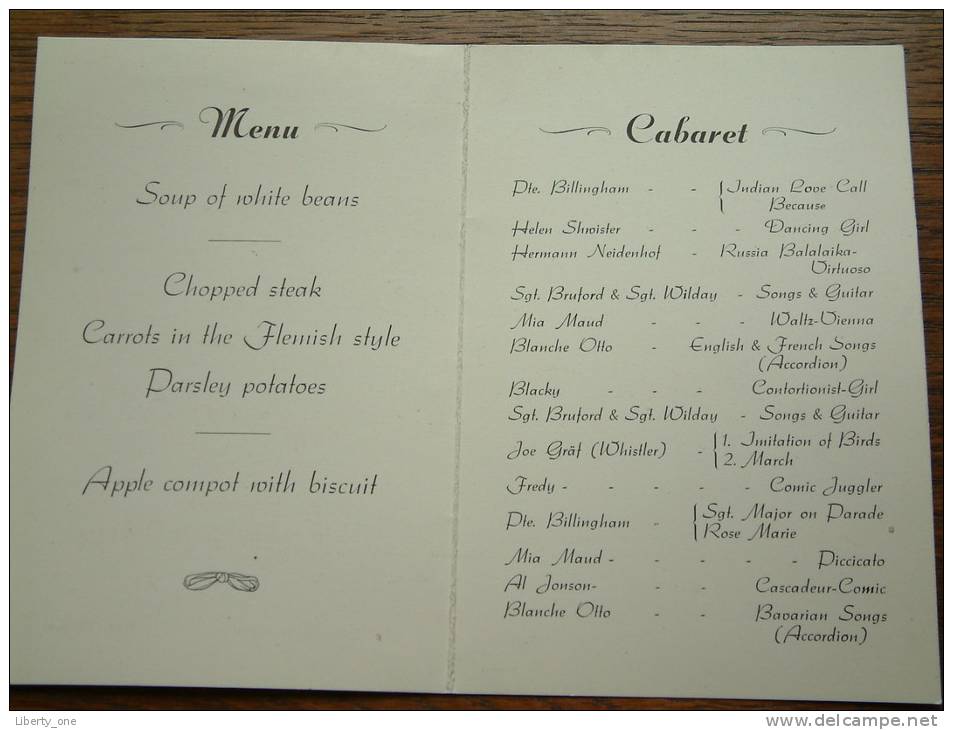 Menu
Soup of white beans
Chopped steak
Carrots in the Flemish style
Parsley potatoes
Apple compot with biscuit
Cabaret
Pte. Billingham - - { Indian Love Call
Because
Helen Shwister - - - Dancing Girl
Hermann Neidenhof - Russia Balalaika-
Virtuoso
Sgt. Bruford & Sgt. Wilday - Songs & Guitar
Mia Maud - - - Waltz-Vienna
Blanche Otto - English & French Songs
(Accordion)
Blacky - - - Contortionist-Girl
Sgt. Bruford & Sgt. Wilday - Songs & Guitar
Joe Gräf (Whistler) - { 1. Imitation of Birds
2. March
Fredy - - - - - Comic Juggler
Pte. Billingham - { Sgt. Major on Parade
Rose Marie
Mia Maud - - - - - Piccicato
Al Jonson - - - Cascadeur-Comic
Blanche Otto - - Bavarian Songs
(Accordion)
Liberty_one
www.delcampe.net